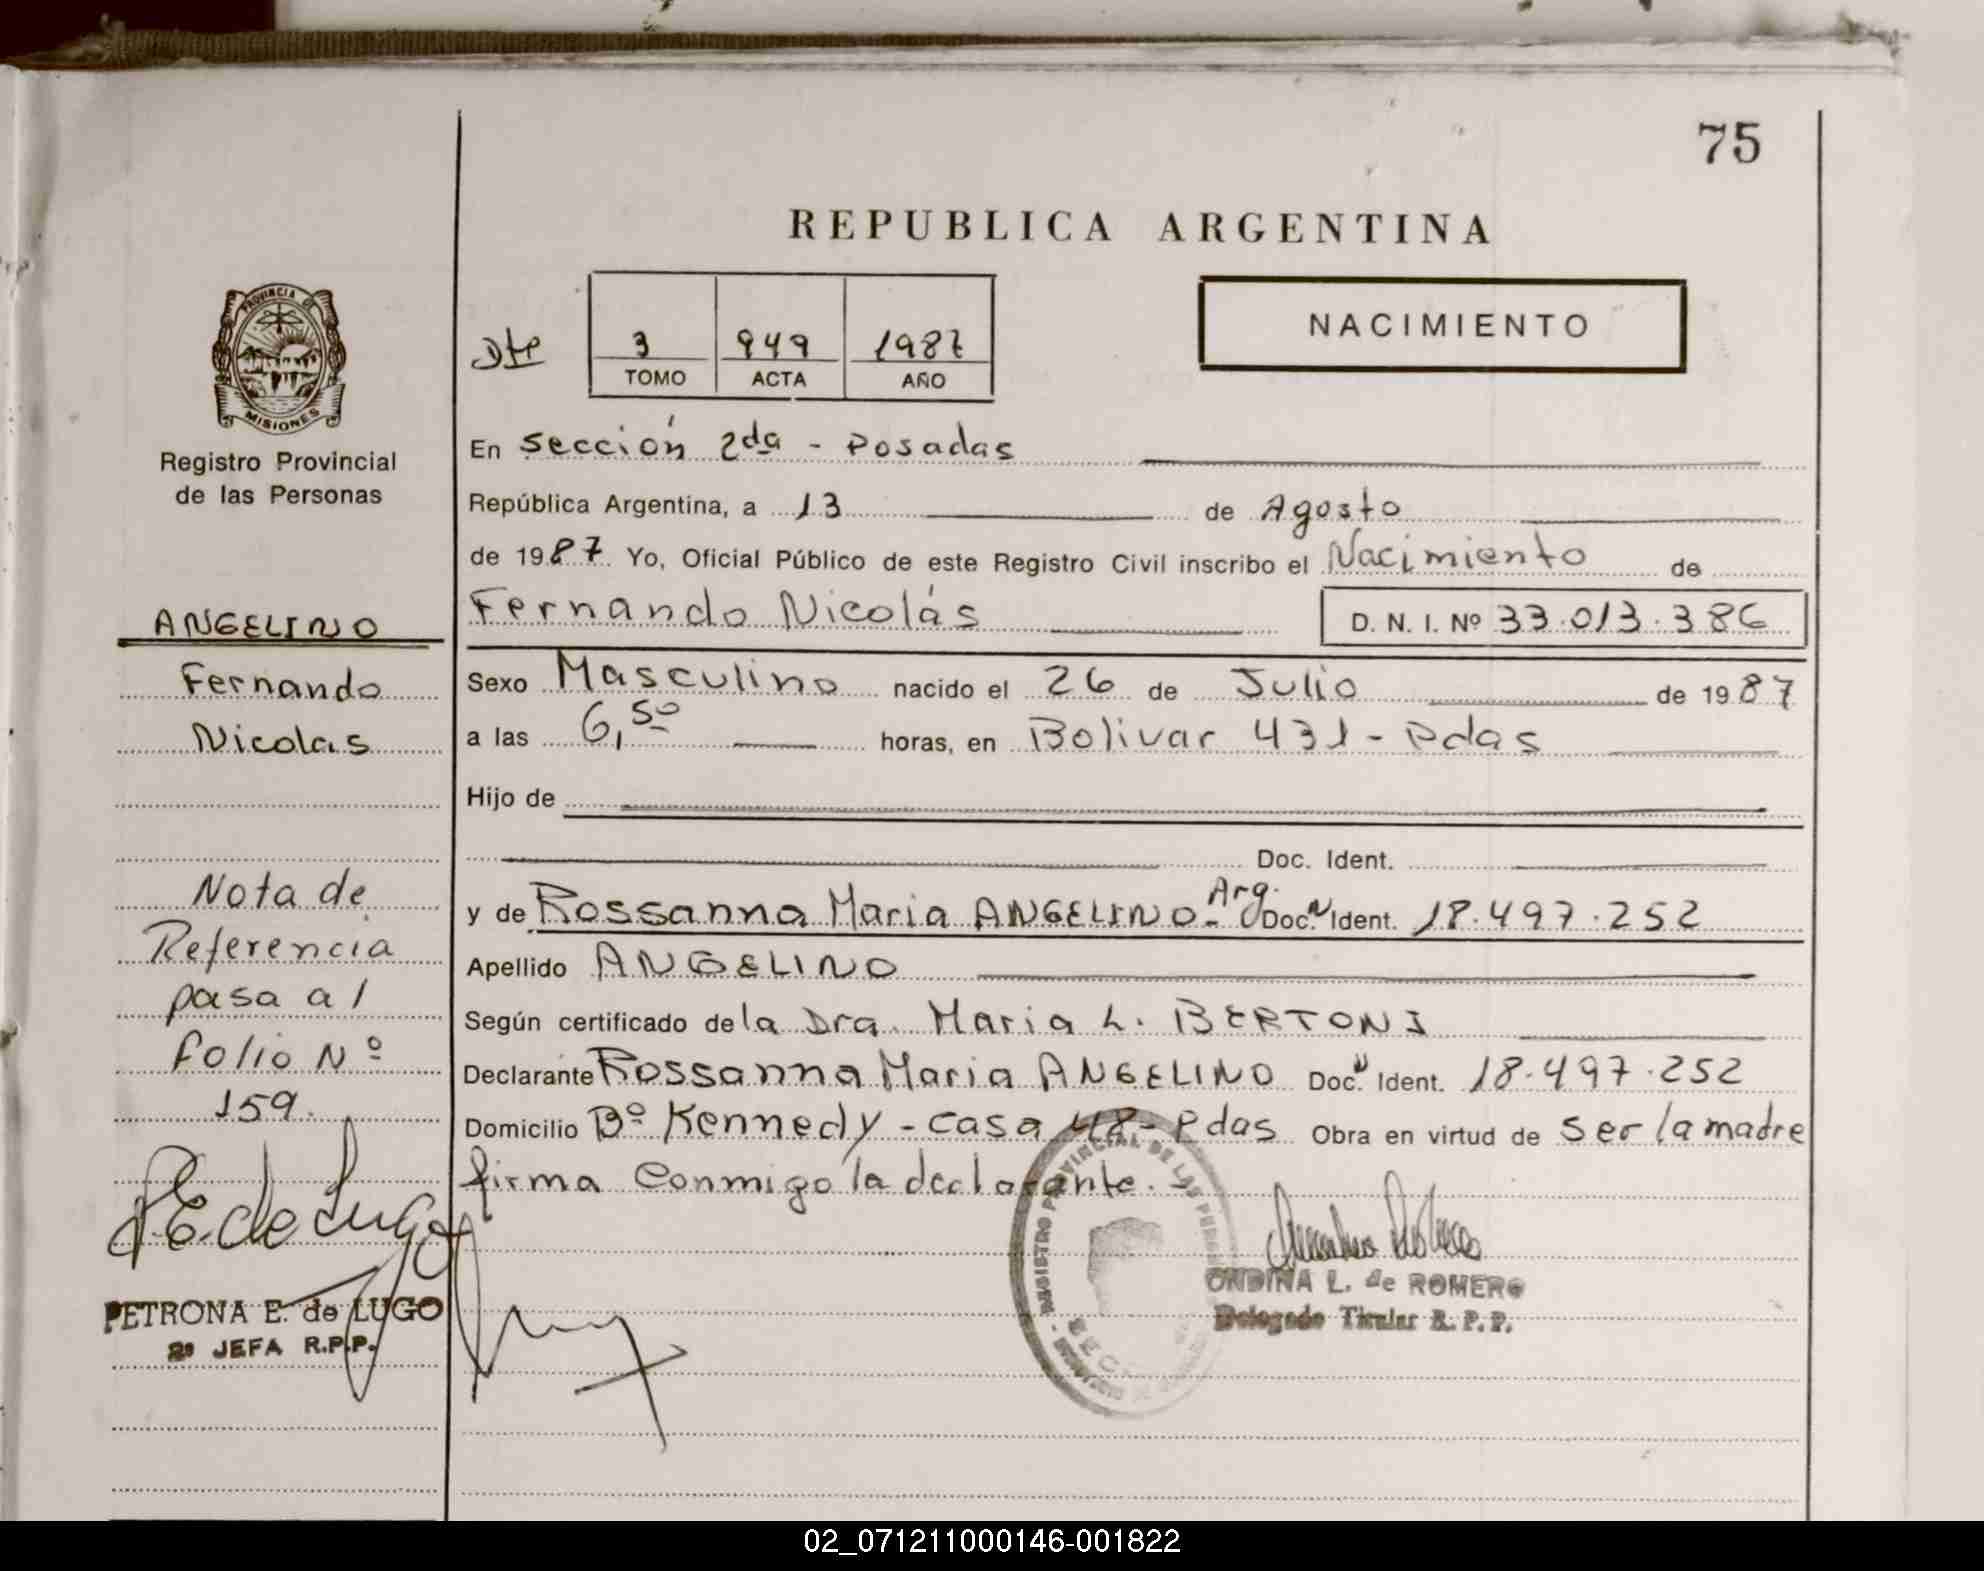 75
REPUBLICA ARGENTINA
PROVINCIA DE
MISIONES
Registro Provincial
de las Personas
Dte
3 949 1987
TOMO ACTA AÑO
NACIMIENTO
En Sección 2da - Posadas
República Argentina, a 13 de Agosto
de 1987 Yo, Oficial Público de este Registro Civil inscribo el Nacimiento de
Fernando Nicolás D. N. I. Nº 33.013.386
Sexo Masculino nacido el 26 de Julio de 1987
a las 6,50 horas, en Bolivar 431 - Pdas
Hijo de
Doc. Ident.
y de Rossanna Maria ANGELINO - Arg. Doc. N Ident. 18.497.252
Apellido ANGELINO
Según certificado de la Dra. Maria L. BERTONI
Declarante Rossanna Maria ANGELINO Doc. N Ident. 18.497.252
Domicilio Bº Kennedy - casa 48 - Pdas Obra en virtud de ser la madre
firma conmigo la declarante.
ANGELINO
Fernando
Nicolas
Nota de
Referencia
pasa al
folio Nº
159.
P.E. de Lugo
PETRONA E. de LUGO
2º JEFA R.P.P.
REGISTRO PROVINCIAL DE LAS
ONDINA L. de ROMERO
Delegado Titular R. P. P.
02_071211000146-001822